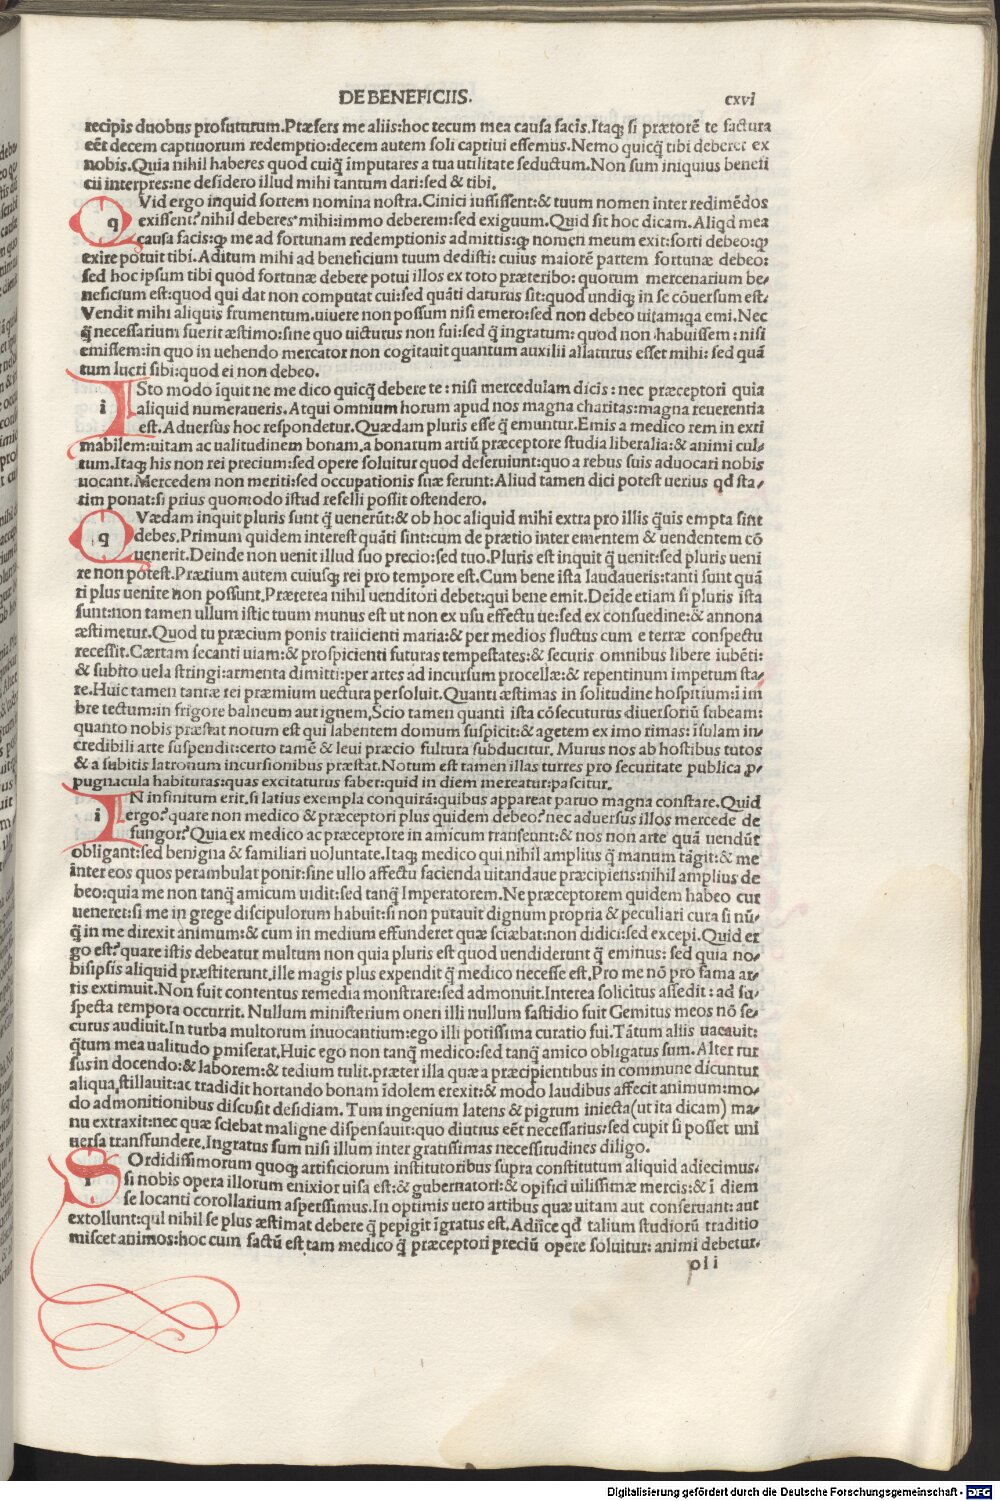 DE BENEFICIIS.
cxvi
recipis duobus profuturum. Præfers me aliis: hoc tecum mea causa facis. Itaq; si prætorē te factura
eēt decem captiuorum redemptio: decem autem soli captiui essemus. Nemo quicq̄ tibi deberet ex
nobis. Quia nihil haberes quod cuiq̄ imputares a tua utilitate seductum. Non sum iniquius benefi
cii interpres: ne desidero illud mihi tantum dari: sed & tibi.
q Vid ergo inquid sortem nomina nostra. Cinici iussissent: & tuum nomen inter redimēdos
exissent? nihil deberes mihi: immo deberem: sed exiguum. Quid sit hoc dicam. Aliqd mea
causa facis: q; me ad fortunam redemptionis admittis: q; nomen meum exit: sorti debeo: q;
exire potuit tibi. Aditum mihi ad beneficium tuum dedisti: cuius maiorē partem fortunæ debeo:
sed hoc ipsum tibi quod fortunæ debere potui illos ex toto præteribo: quorum mercenarium be-
neficium est: quod qui dat non computat cui: sed quāti daturus sit: quod undiq; in se cōuersum est.
Vendit mihi aliquis frumentum. uiuere non possum nisi emero: sed non debeo uitam: qa emi. Nec
q̄ necessarium fuerit æstimo: sine quo uicturus non fui: sed q̄ ingratum: quod non habuissem: nisi
emissem: in quo in uehendo mercator non cogitauit quantum auxilii allaturus esset mihi: sed quā
tum lucri sibi: quod ei non debeo.
i Sto modo īquit ne me dico quicq̄ debere te: nisi mercedulam dicis: nec præceptori quia
aliquid numeraueris. Atqui omnium horum apud nos magna charitas: magna reuerentia
est. Aduersus hoc respondetur. Quædam pluris esse q̄ emuntur. Emis a medico rem in exti
mabilem: uitam ac ualitudinem bonam. a bonarum artiū præceptore studia liberalia: & animi cul-
tum. Itaq; his non rei precium: sed opere soluitur quod deseruiunt: quo a rebus suis aduocari nobis
uocant. Mercedem non meriti: sed occupationis suæ ferunt: Aliud tamen dici potest uerius qd sta-
tim ponat: si prius quomodo istud reselli possit ostendero.
q Vædam inquit pluris sunt q̄ uenerūt: & ob hoc aliquid mihi extra pro illis q̄uis empta sint
debes. Primum quidem interest quāti sint: cum de prætio inter ementem & uendentem cō
uenerit. Deinde non uenit illud suo precio: sed tuo. Pluris est inquit q̄ uenit: sed pluris ueni
re non potest. Prætium autem cuiusq; rei pro tempore est. Cum bene ista laudaueris: tanti sunt quā
ti plus uenire non possunt. Præterea nihil uenditori debet: qui bene emit. Deīde etiam si pluris ista
sunt: non tamen ullum istic tuum munus est ut non ex usu effectu ue: sed ex consuedine: & annona
æstimetur. Quod tu præcium ponis traiicienti maria: & per medios fluctus cum e terræ conspectu
recessit. Cærtam secanti uiam: & prospicienti futuras tempestates: & securis omnibus libere iubēti:
& subito uela stringi: armenta dimitti: per artes ad incursum procellæ: & repentinum impetum sta-
re. Huic tamen tantæ rei præmium uectura persoluit. Quanti æstimas in solitudine hospitium: ī im
bre tectum: in frigore balneum aut ignem. Scio tamen quanti ista cōsecuturus diuersoriū subeam:
quanto nobis præstat notum est qui labentem domum suspicit: & agetem ex imo rimas: īsulam in-
credibili arte suspendit: certo tamē & leui præcio fultura subducitur. Murus nos ab hostibus tutos
& a subitis latronum incursionibus præstat. Notum est tamen illas turres pro securitate publica p-
pugnacula habituras: quas excitaturus faber: quid in diem mereatur: pascitur.
i N infinitum erit. si latius exempla conquirā: quibus appareat paruo magna constare. Quid
ergo? quare non medico & præceptori plus quidem debeo? nec aduersus illos mercede de
fungor? Quia ex medico ac præceptore in amicum transeunt: & nos non arte quā uendūt
obligant: sed benigna & familiari uoluntate. Itaq; medico qui nihil amplius q̄ manum tāgit: & me
inter eos quos perambulat ponit: sine ullo affectu facienda uitandaue præcipiens: nihil amplius de
beo: quia me non tanq̄ amicum uidit: sed tanq̄ Imperatorem. Ne præceptorem quidem habeo cur
ueneret: si me in grege discipulorum habuit: si non putauit dignum propria & peculiari cura si nū-
q̄ in me direxit animum: & cum in medium effunderet quæ sciæbat: non didici: sed excepi. Quid er
go est? quare istis debeatur multum non quia pluris est quod uendiderunt q̄ emimus: sed quia no-
bisipsis aliquid præstiterunt. ille magis plus expendit q̄ medico necesse est. Pro me nō pro fama ar-
tis extimuit. Non fuit contentus remedia monstrare: sed admonuit. Interea solicitus assedit: ad su-
specta tempora occurrit. Nullum ministerium oneri illi nullum fastidio fuit Gemitus meos nō se-
curus audiuit. In turba multorum inuocantium: ego illi potissima curatio fui. Tātum aliis uacauit:
q̄tum mea ualitudo pmiserat. Huic ego non tanq̄ medico: sed tanq̄ amico obligatus sum. Alter rur
sus in docendo: & laborem: & tedium tulit. præter illa quæ a præcipientibus in commune dicuntur
aliqua stillauit: ac tradidit hortando bonam īdolem erexit: & modo laudibus affecit animum: mo-
do admonitionibus discusit desidiam. Tum ingenium latens & pigrum iniecta (ut ita dicam) ma-
nu extraxit: nec quæ sciebat maligne dispensauit: quo diutius eēt necessarius: sed cupit si posset uni
uersa transfundere. Ingratus sum nisi illum inter gratissimas necessitudines diligo.
S Ordidissimorum quoq; artificiorum institutoribus supra constitutum aliquid adiecimus.
si nobis opera illorum enixior uisa est: & gubernatori: & opifici uilissimæ mercis: & ī diem
se locanti corollarium aspersimus. In optimis uero artibus quæ uitam aut conseruant: aut
extollunt: qui nihil se plus æstimat debere q̄ pepigit īgratus est. Adiice qd talium studiorū traditio
miscet animos: hoc cum factū est tam medico q̄ præceptori preciū opere soluitur: animi debetur.
oii
Digitalisierung gefördert durch die Deutsche Forschungsgemeinschaft - DFG